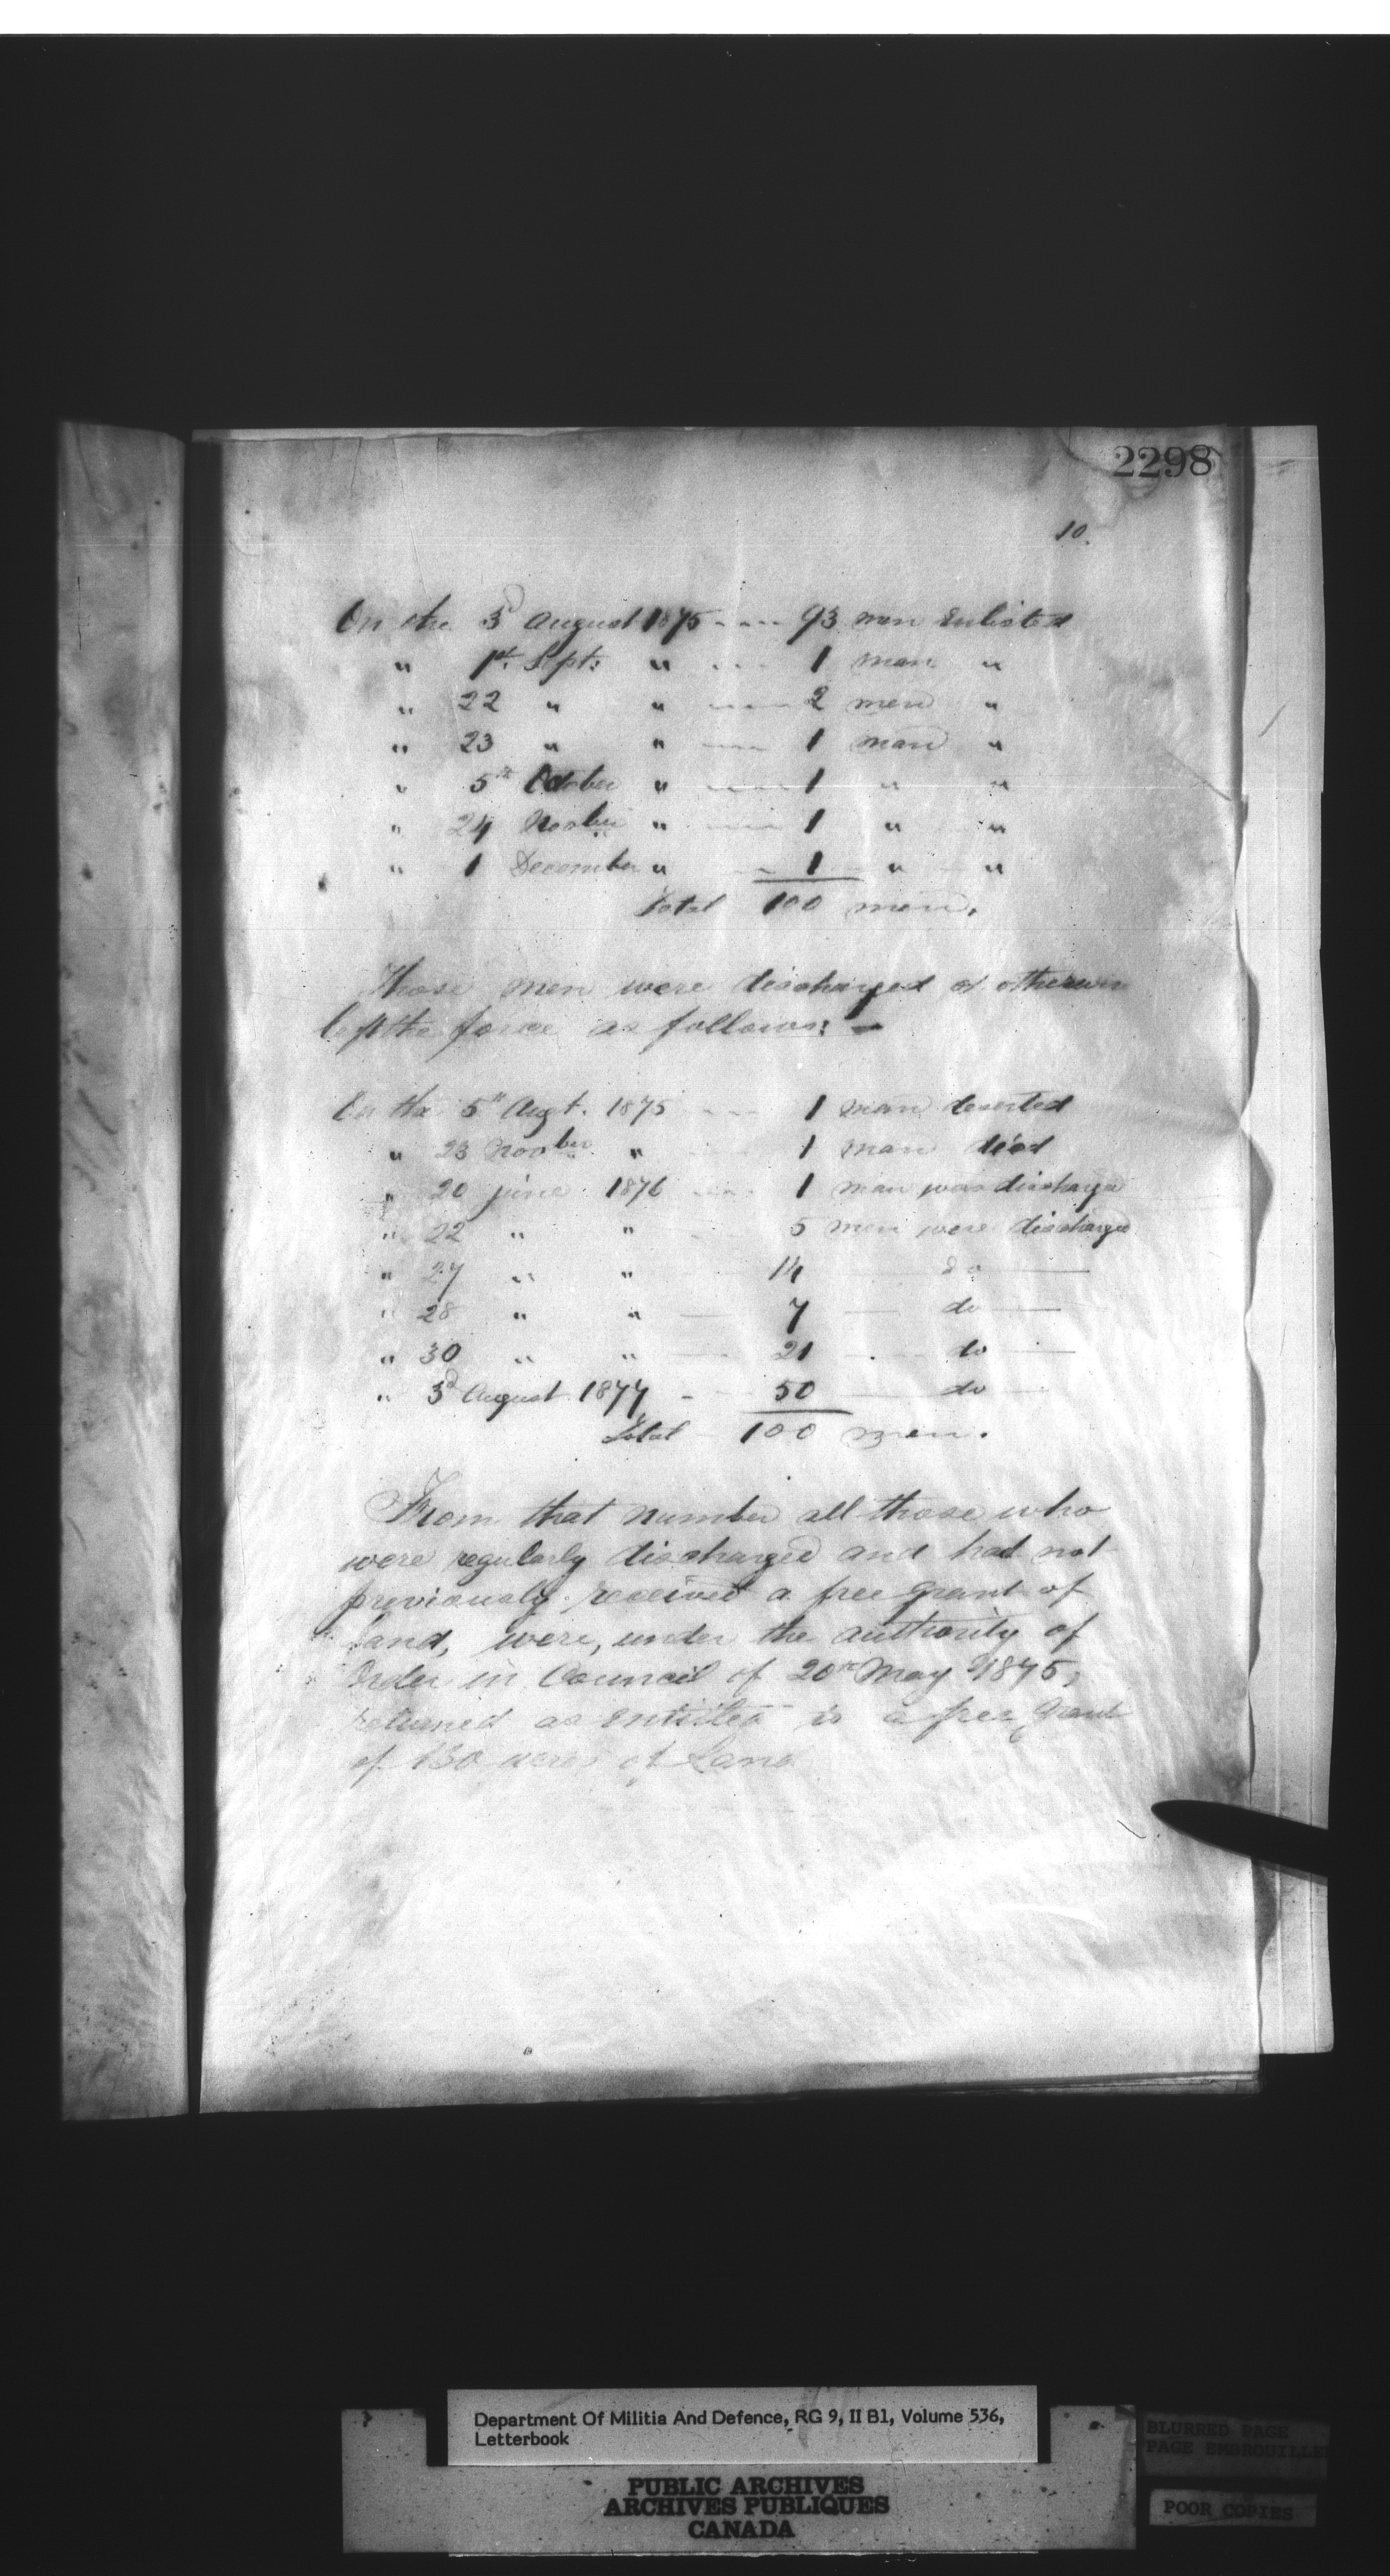 2298
10.
On the 3d August 1875 ---- 93 men Enlisted
" 1st. Sept: " --- 1 man "
" 22 " " ---- 2 men "
" 23 " " ---- 1 man "
" 5th October " ---- 1 " "
" 24 Novber " ---- 1 " "
" 1 December " -- 1 " "
Total 100 men.
Those men were discharged or otherwise
left the force as follows: —
On the 5th Augt. 1875 ---- 1 man deserted
" 23 Novber " --- 1 man died
" 20 june 1876 ---- 1 man was discharged
" 22 " " - 5 men were discharged
" 27 " " 14 — do —
" 28 " " — 7 — do —
" 30 " " — 21 - do —
" 3d August 1877 - 50 — do —
Total 100 men.
From that number all those who
were regularly discharged and had not
previously received a free grant of
land, were, under the authority of
Order in Council of 20th May 1875,
returned as entitled to a free Grant
of 160 acres of Land
Department Of Militia And Defence, RG 9, II B1, Volume 536,
Letterbook
PUBLIC ARCHIVES
ARCHIVES PUBLIQUES
CANADA
BLURRED PAGE
PAGE EMBROUILLEE
POOR COPIES